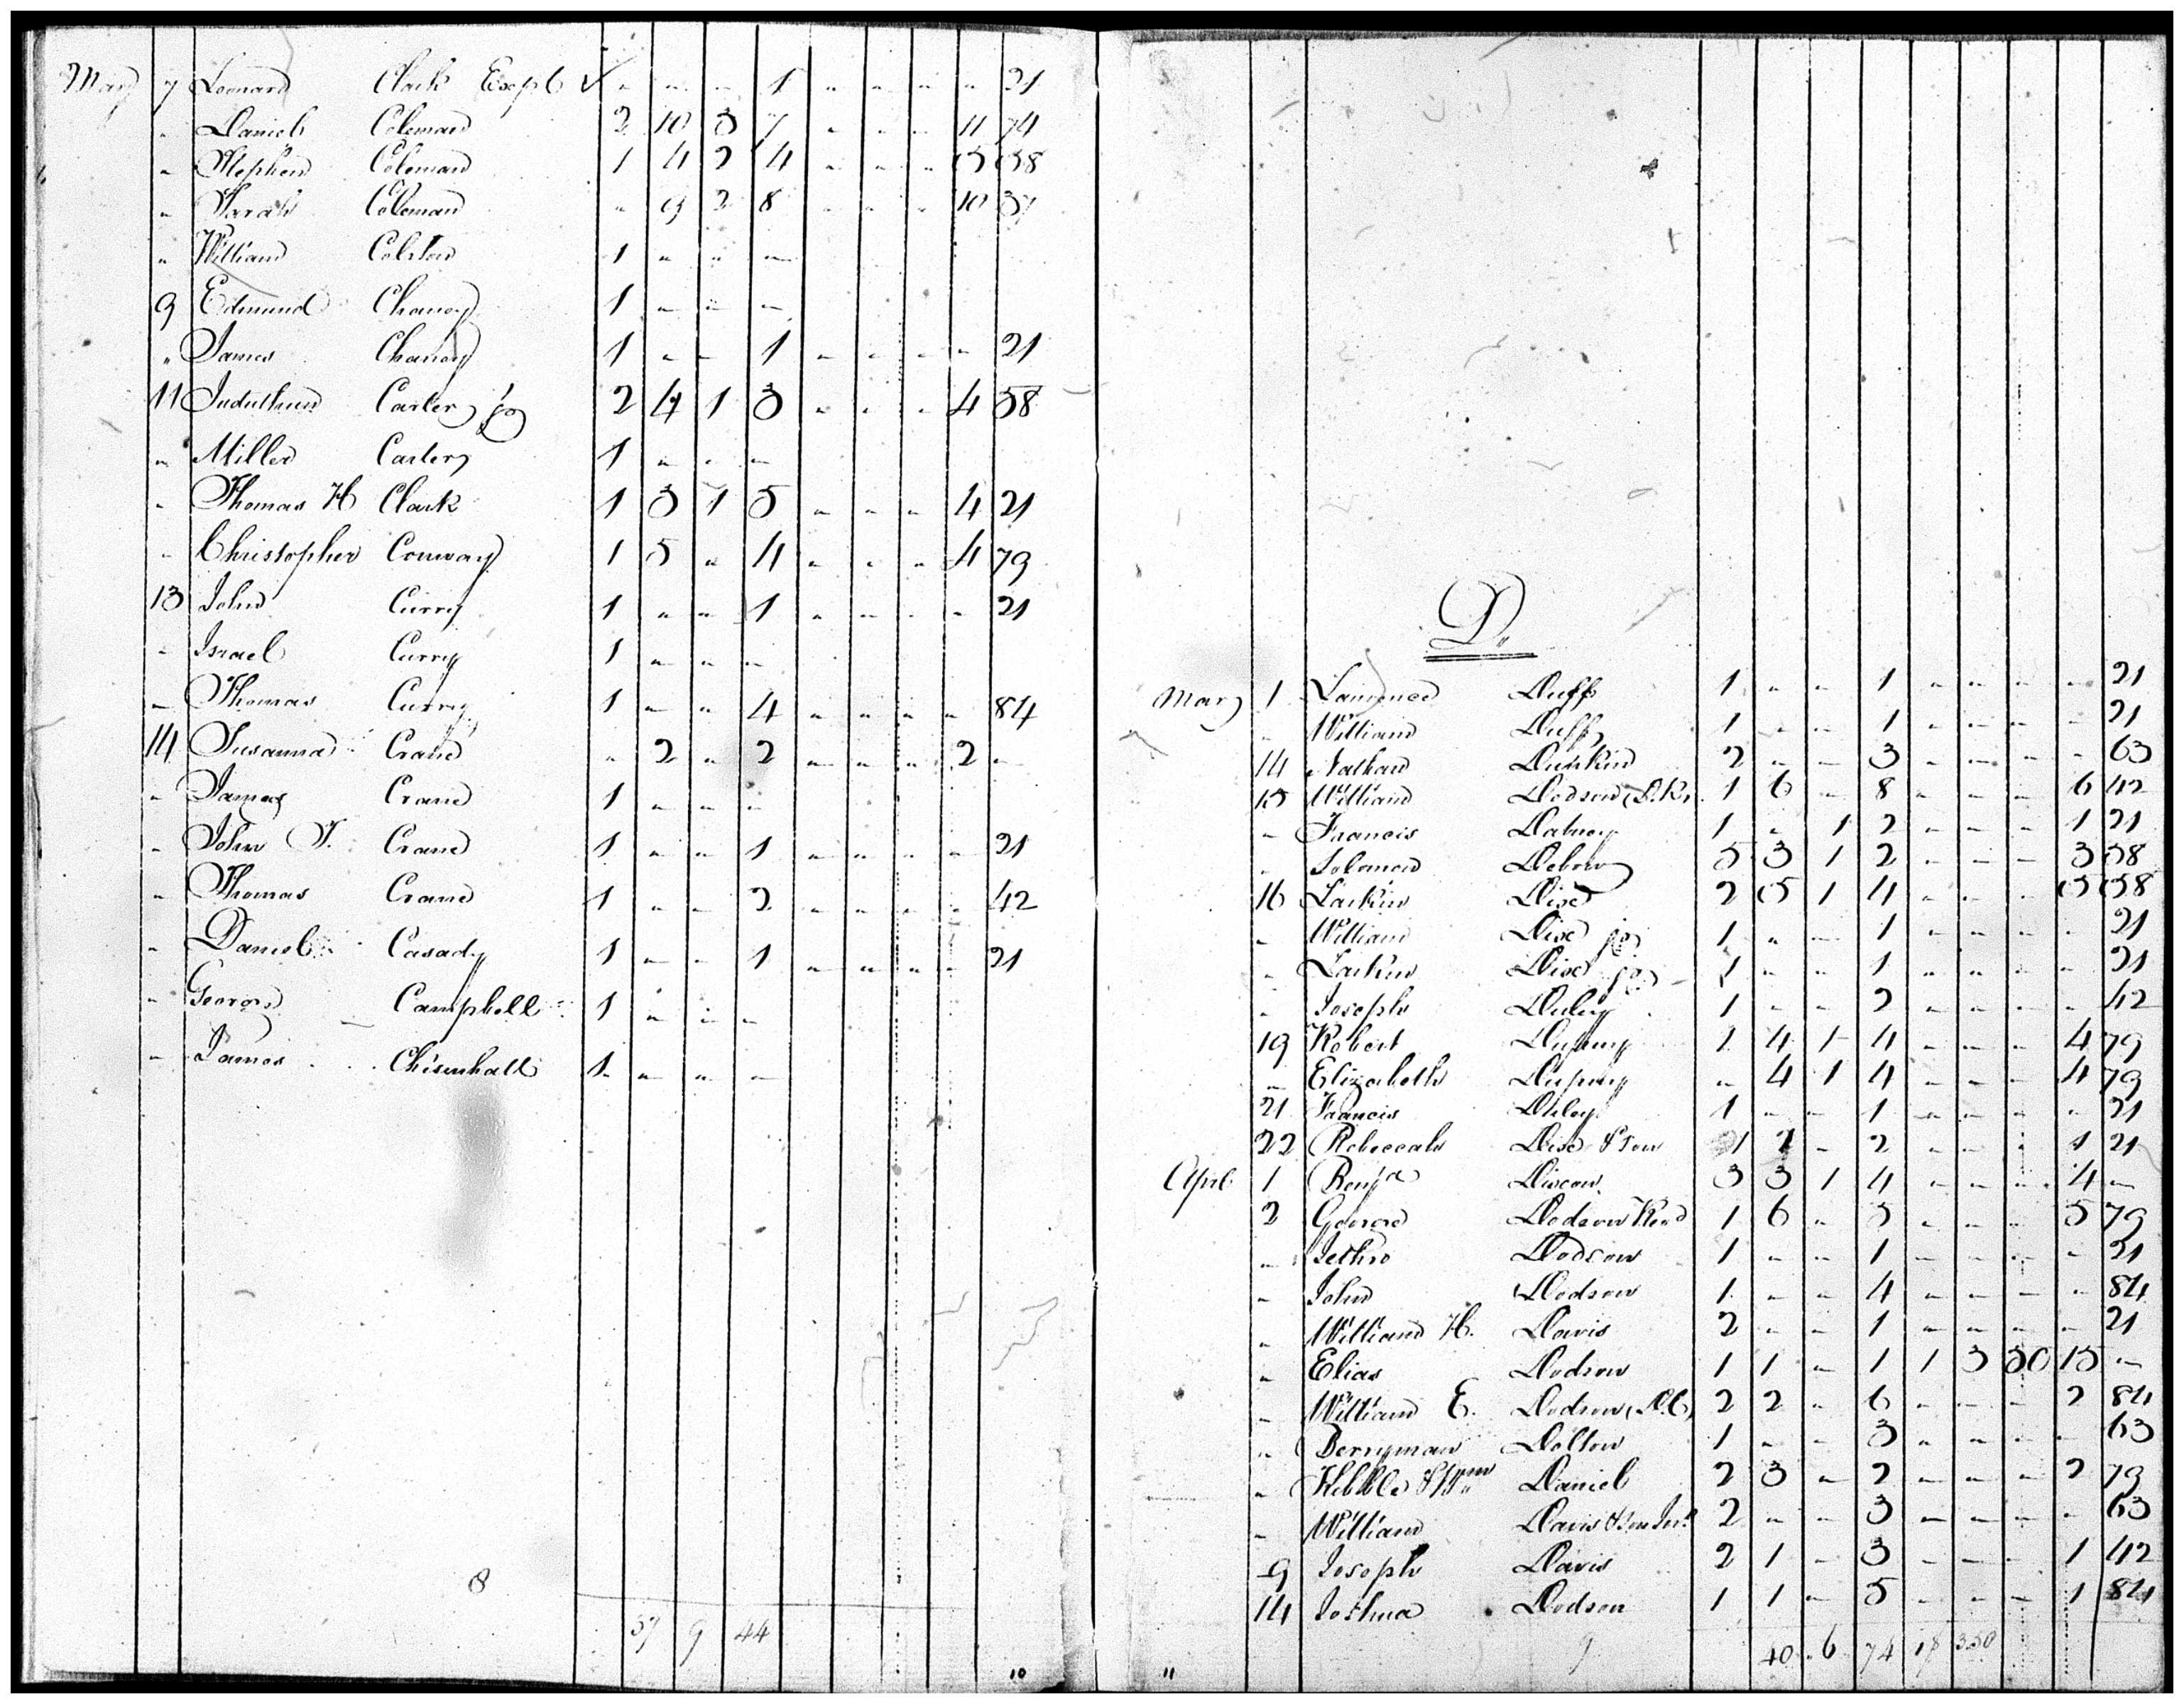 May 7 Leonard Clark Exempt ✓ " " " 1 " " " " 21
" Daniel Coleman 2 10 3 7 " " " 11 74
" Stephen Coleman 1 4 2 4 " " " 5 58
" Sarah Coleman " 9 2 8 " " " 10 37
" William Colston 1 " " "
9 Edmund Chaney 1 " " "
" James Chaney 1 " " 1 " " " " 21
11 Jeduthun Carter jr 2 4 1 3 " " " 4 58
" Miller Carter 1 " " "
" Thomas H Clark 1 3 1 5 " " " 4 21
" Christopher Conway 1 5 " 4 " " " 4 79
13 John Curry 1 " " 1 " " " " 21
" Israel Curry 1 " " "
" Thomas Curry 1 " " 4 " " " " 84
14 Susanna Crane " 2 " 2 " " " 2 "
" James Crane 1 " " "
" John T. Crane 1 " " 1 " " " " 21
" Thomas Crane 1 " " 2 " " " " 42
" Daniel Casady 1 " " 1 " " " " 21
" George Campbell 1 " " "
" James Chisenhall 1 " " "
8
37 9 44
10
D.
May 1 Lawrence Duff 1 " " 1 " " " " 21
" William Duff 1 " " 1 " " " " 21
14 Nathan Dunkin 2 " " 3 " " " " 63
15 William Dodson 1 6 " 8 " " " 6 42
" Francis Dabney 1 " 1 2 " " " 1 21
" Solomon Debow 5 3 1 2 " " " 3 58
16 Larkin Dix 2 5 1 4 " " " 5 58
" William Dix jr 1 " " 1 " " " " 21
" Larkin Dix jr 1 " " 1 " " " " 21
" Joseph Duley 1 " " 2 " " " " 42
19 Robert Dupuy 1 4 1 4 " " " 4 79
" Elizabeth Dupuy " 4 1 4 " " " 4 79
21 Francis Duley 1 " " 1 " " " " 21
22 Rebeccah Dix & son 1 1 " 2 " " " 1 21
April 1 Benja 3 3 1 4 " " " 4 "
2 George Dodson 1 6 " 5 " " " 5 79
" Jethro Dodson 1 " " 1 " " " " 21
" John Dodson 1 " " 4 " " " " 84
" William H. Davis 2 " " 1 " " " " 21
" Elias Dodson 1 1 " 1 1 3 50 15 "
" William E. Dodson 2 2 " 6 " " " 2 84
" Berryman Dolton 1 " " 3 " " " " 63
" Daniel 2 3 " 2 " " " 2 79
" William Davis & son 2 " " 3 " " " " 63
9 Joseph Davis 2 1 " 3 " " " 1 42
14 Joshua Dodson 1 1 " 5 " " " 1 84
9 40 6 74 350
11